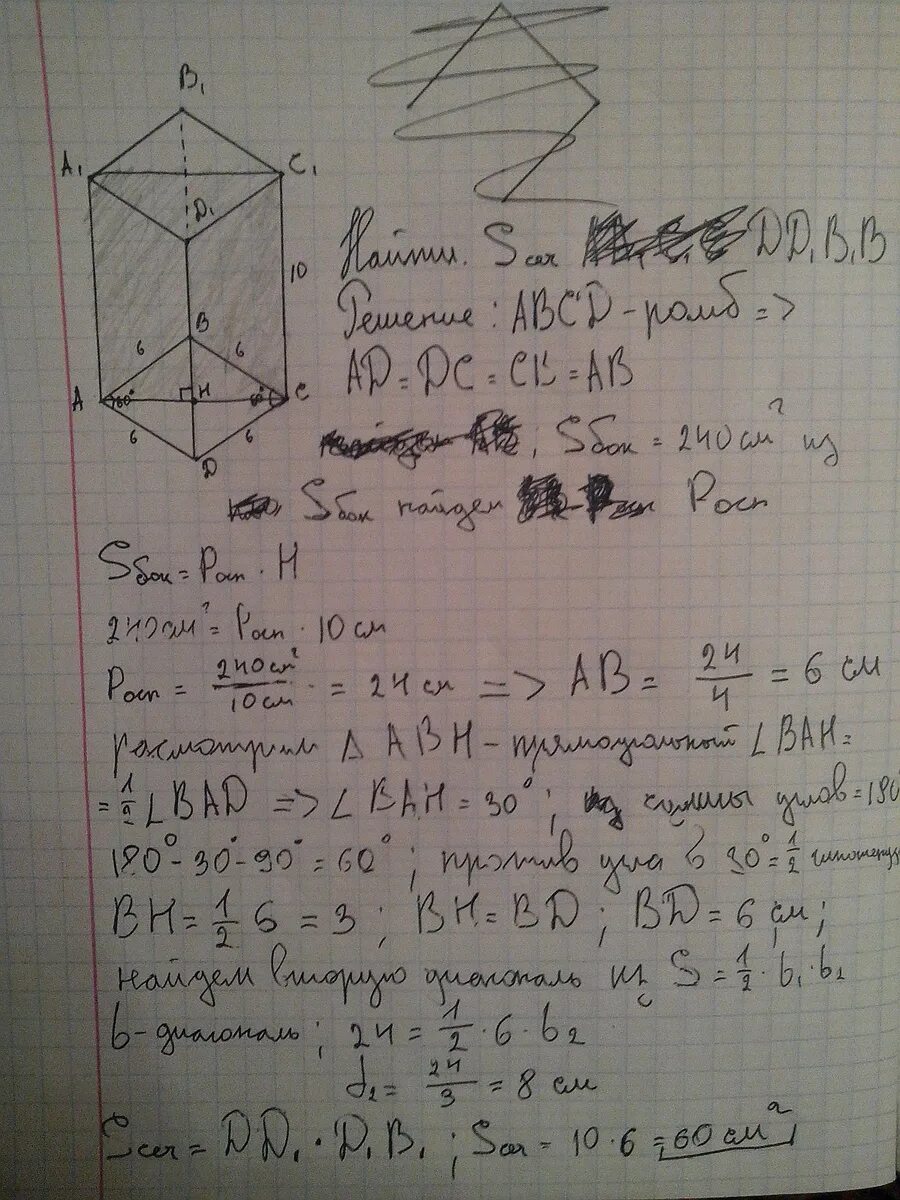 B₁
A₁
C₁
D₁
10
B
6
6
A
60°
H
60°
C
6
6
D
Найти. Sсеч DD₁B₁B
Решение: ABCD - ромб =>
AD = DC = CB = AB
; Sбок = 240 см² из
Sбок найдем Pосн
Sбок = Pосн · H
240 см² = Pосн · 10 см
Pосн = 240 см² / 10 см = 24 см => AB = 24/4 = 6 см
расмотрим Δ ABH - прямоугольный ∠BAH =
= 1/2 ∠BAD => ∠BAH = 30°; из суммы углов = 180
180° - 30° - 90° = 60°; против угла в 30° = 1/2 гипотенузы
BH = 1/2 6 = 3; BH = BD; BD = 6 см;
найдем вторую диагональ из S = 1/2 · b₁ · b₂
b - диагональ; 24 = 1/2 · 6 · b₂
d₂ = 24/3 = 8 см
Sсеч = DD₁ · D₁B₁; Sсеч = 10 · 6 = 60 см²